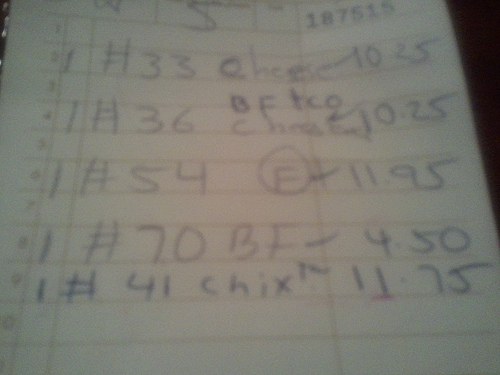 5 187515
1 # 33 Cheese 10.25
1 # 36 BF tco
cheese 10.25
1 # 54 E 11.95
1 # 70 BF - 4.50
1 # 41 chix 11.75